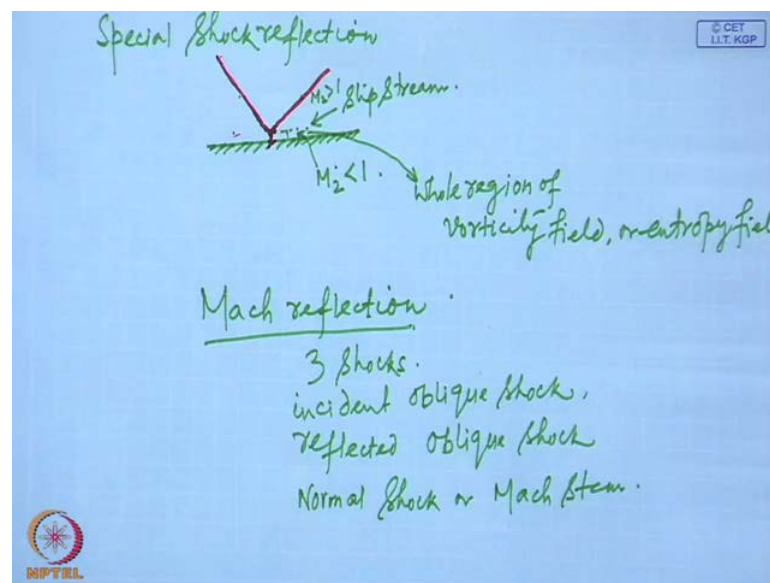 Special Shock reflection
© CET
I.I.T. KGP
M₂>1
Slip Stream.
M₂<1.
Whole region of
vorticity field, or entropy fiel
Mach reflection.
3 Shocks.
incident oblique shock,
reflected oblique shock
Normal shock or Mach Stem.
NPTEL